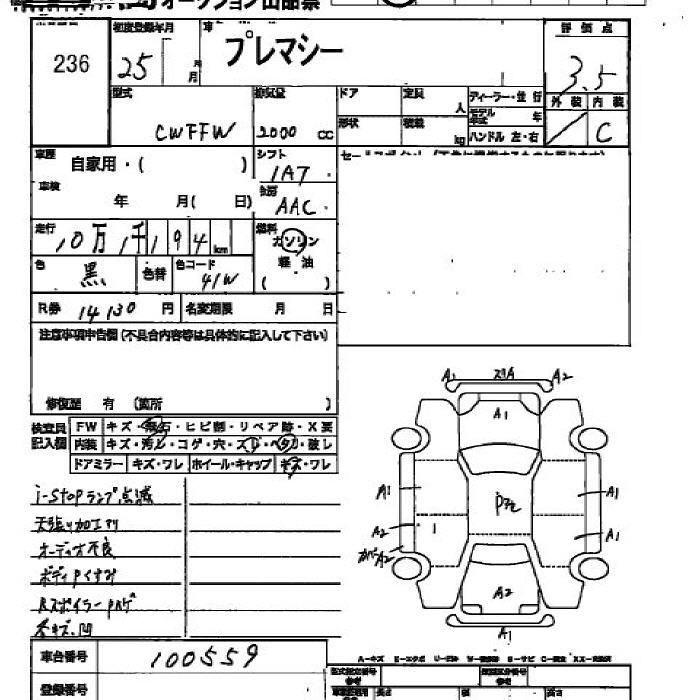 オークション出品票
236
初度登録年月
25 年 月
車
プレマシー
評価点
3.5
型式
CWFFW
排気量
2000 cc
ドア
定員 人
形状
積載 kg
ディーラー・並行
モデル年式 年
ハンドル 左・右
外装 内装
C
車歴
自家用・( )
車検
年 月( 日)
シフト
1A7
冷房
AAC
走行
10万1千194km
燃料
ガソリン
軽油
( )
色
黒
色替
色コード
41W
R券 14130 円
名変期限 月 日
注意事項申告欄(不具合内容等は具体的に記入して下さい)
修復歴 有 (箇所 )
検査員
記入欄
FW キズ・飛石・ヒビ割・リペア跡・X要
内装 キズ・汚れ・コゲ・穴・スレ・ヘタリ・破レ
ドアミラー キズ・ワレ ホイール・キャップ キズ・ワレ
i-stopランプ点滅
天張り加工有り
オーディオ不良
ボディPくすみ
RスポイラーPハゲ
冬キズ、凹
A1 スリA A2
A1
A1 A1
A2 A1
カバーA2
A2
A1
車台番号 100559
登録番号